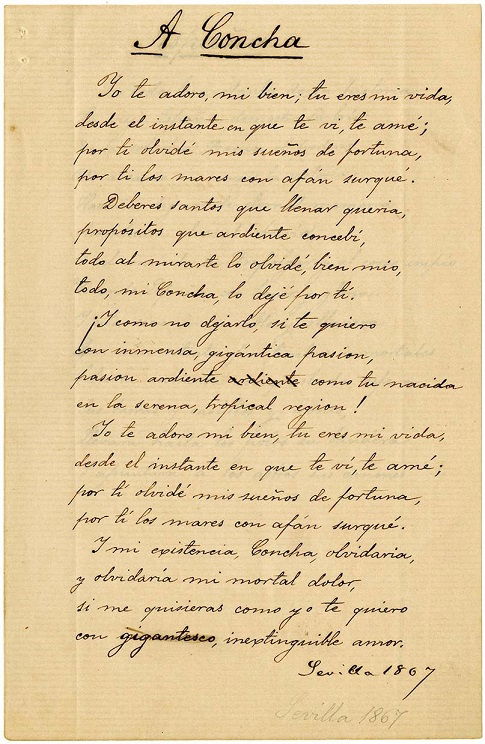 A Concha
Yo te adoro, mi bien; tu eres mi vida,
desde el instante en que te vi, te amé;
por ti olvidé mis sueños de fortuna,
por ti los mares con afán surqué.
Deberes santos que llenar queria,
propósitos que ardiente concebí,
todo al mirarte lo olvidé, bien mio,
todo, mi Concha, lo dejé por tí.
¡Y como no dejarlo, si te quiero
con inmensa, gigántica pasion,
pasion ardiente ardiente como tu nacida
en la serena, tropical region!
Yo te adoro mi bien, tu eres mi vida,
desde el instante en que te ví, te amé;
por tí olvidé mis sueños de fortuna,
por tí los mares con afán surqué.
Y mi existencia, Concha, olvidaría,
y olvidaría mi mortal dolor,
si me quisieras como yo te quiero
con gigantesco, inextinguible amor.
Sevilla 1867
Sevilla 1867